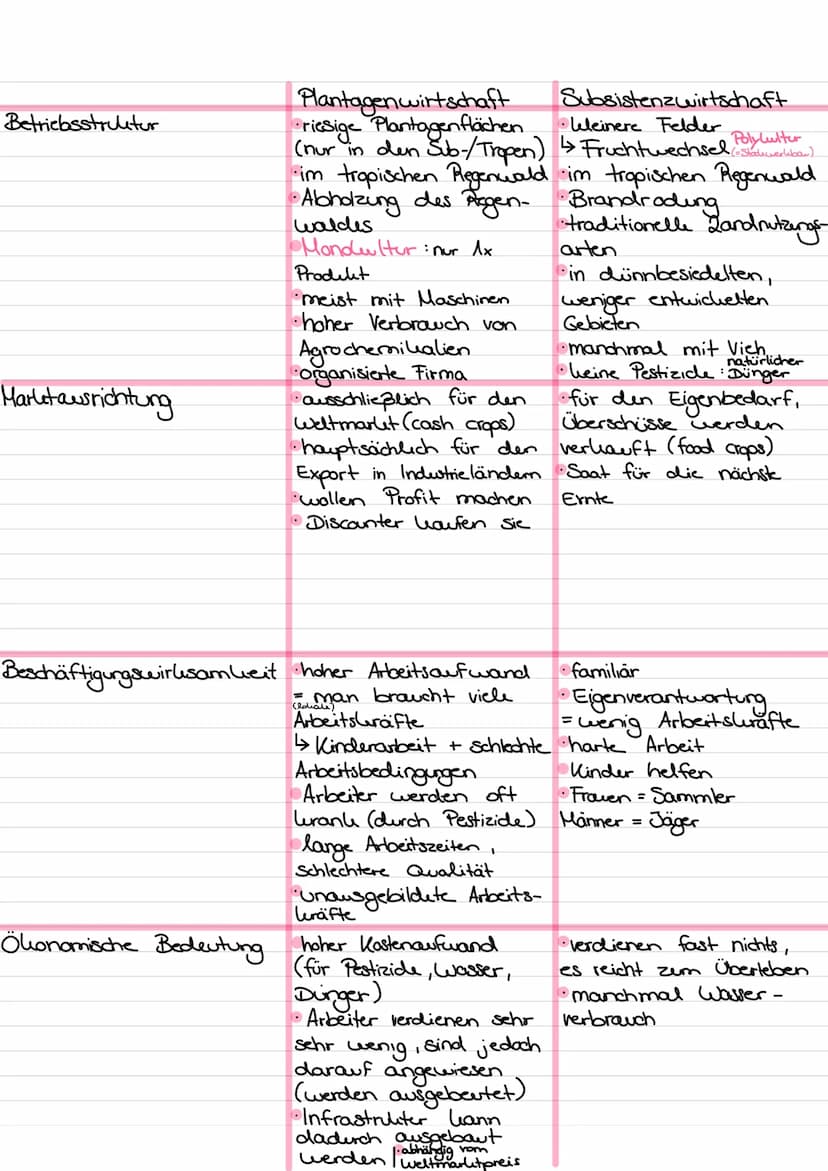 Plantagenwirtschaft
Subsistenzwirtschaft
Betriebsstruktur
• riesige Plantagenflächen
(nur in den Sub-/Tropen)
• im tropischen Regenwald
• Abholzung des Regen-
waldes
• Monokultur : nur 1x
Produkt
• meist mit Maschinen
• hoher Verbrauch von
Agrochemikalien
• organisierte Firma
• kleinere Felder
↳ Fruchtwechsel Polykultur
(= Stockwerkbau)
• im tropischen Regenwald
• Brandrodung
• traditionelle Landnutzungs-
arten
• in dünnbesiedelten,
weniger entwickelten
Gebieten
• manchmal mit Vieh
• keine Pestizide : natürlicher
Dünger
Marktausrichtung
• ausschließlich für den
Weltmarkt (cash crops)
• hauptsächlich für den
Export in Industrieländern
• wollen Profit machen
• Discounter kaufen sie
• für den Eigenbedarf,
Überschüsse werden
verkauft (food crops)
• Saat für die nächste
Ernte
Beschäftigungswirksamkeit
• hoher Arbeitsaufwand
= man braucht viele
(lokale)
Arbeitskräfte
↳ Kinderarbeit + schlechte
Arbeitsbedingungen
• Arbeiter werden oft
krank (durch Pestizide)
• lange Arbeitszeiten,
schlechtere Qualität
• unausgebildete Arbeits-
kräfte
• familiär
• Eigenverantwortung
= wenig Arbeitskräfte
• harte Arbeit
• Kinder helfen
• Frauen = Sammler
Männer = Jäger
Ökonomische Bedeutung
• hoher Kostenaufwand
(für Pestizide, Wasser,
Dünger)
• Arbeiter verdienen sehr
sehr wenig, sind jedoch
darauf angewiesen
(werden ausgebeutet)
• Infrastruktur kann
dadurch ausgebaut
werden | • abhängig vom
Weltmarktpreis
• verdienen fast nichts,
es reicht zum Überleben
• manchmal Wasser-
verbrauch